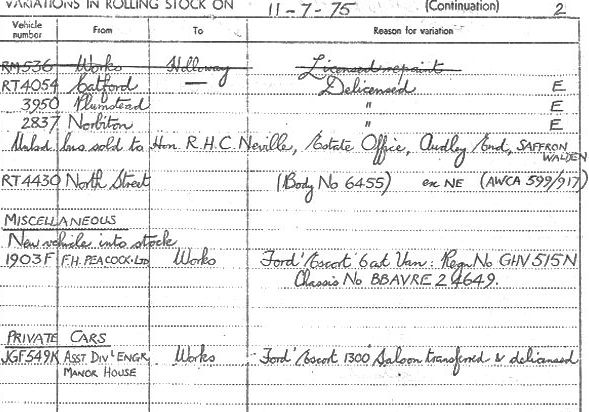 VARIATIONS IN ROLLING STOCK ON 11-7-75 (Continuation) 2
Vehicle number From To Reason for variation
RM536 Works Holloway Licensed repaint
RT4054 Catford — Delicensed E
3950 Plumstead " E
2837 Norbiton " E
Unlsd. bus sold to Hon. R.H.C. Neville, Estate Office, Audley End, SAFFRON WALDEN
RT4430 North Street (Body No 6455) ex NE (AWCA 599/917)
MISCELLANEOUS
New vehicle into stock
1903F F.H. PEACOCK. LTD Works Ford 'Escort' 6 cwt Van: Regn No GHV 515N
Chassis No BBAVRE 24649.
PRIVATE CARS
JGF549K ASST DIVL ENGR Works Ford 'Escort 1300' Saloon transferred & delicensed
MANOR HOUSE